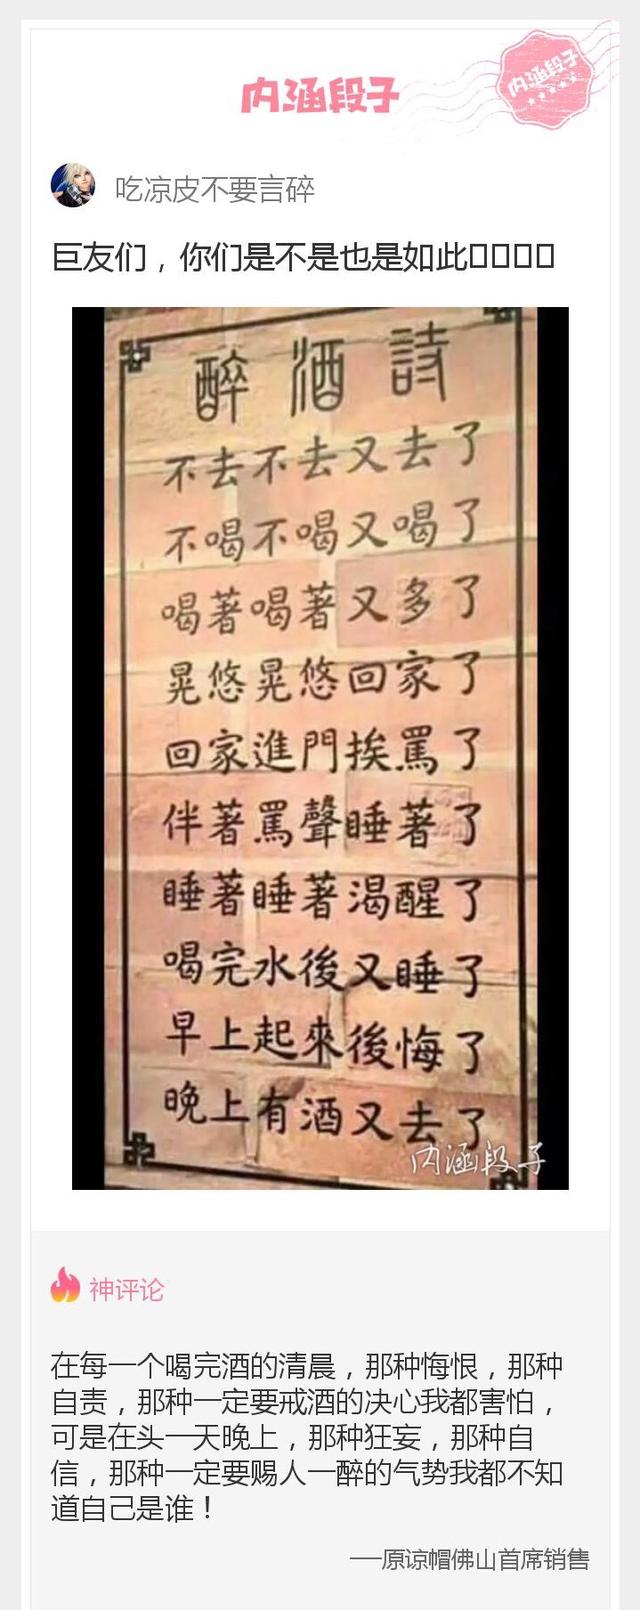 内涵段子
内涵段子
吃凉皮不要言碎
巨友们，你们是不是也是如此
醉酒詩
不去不去又去了
不喝不喝又喝了
喝著喝著又多了
晃悠晃悠回家了
回家進門挨罵了
伴著罵聲睡著了
睡著睡著渴醒了
喝完水後又睡了
早上起來後悔了
晚上有酒又去了
内涵段子
神评论
在每一个喝完酒的清晨，那种悔恨，那种
自责，那种一定要戒酒的决心我都害怕，
可是在头一天晚上，那种狂妄，那种自
信，那种一定要赐人一醉的气势我都不知
道自己是谁！
──原谅帽佛山首席销售